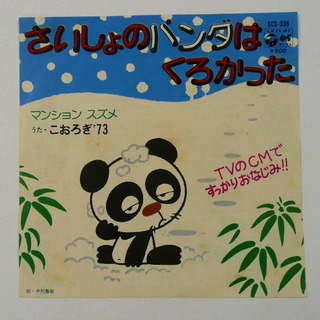 SCS-336
¥500
さいしょのパンダは
くろかった
マンション スズメ
うた・こおろぎ'73
TVのCMで
すっかりおなじみ!!